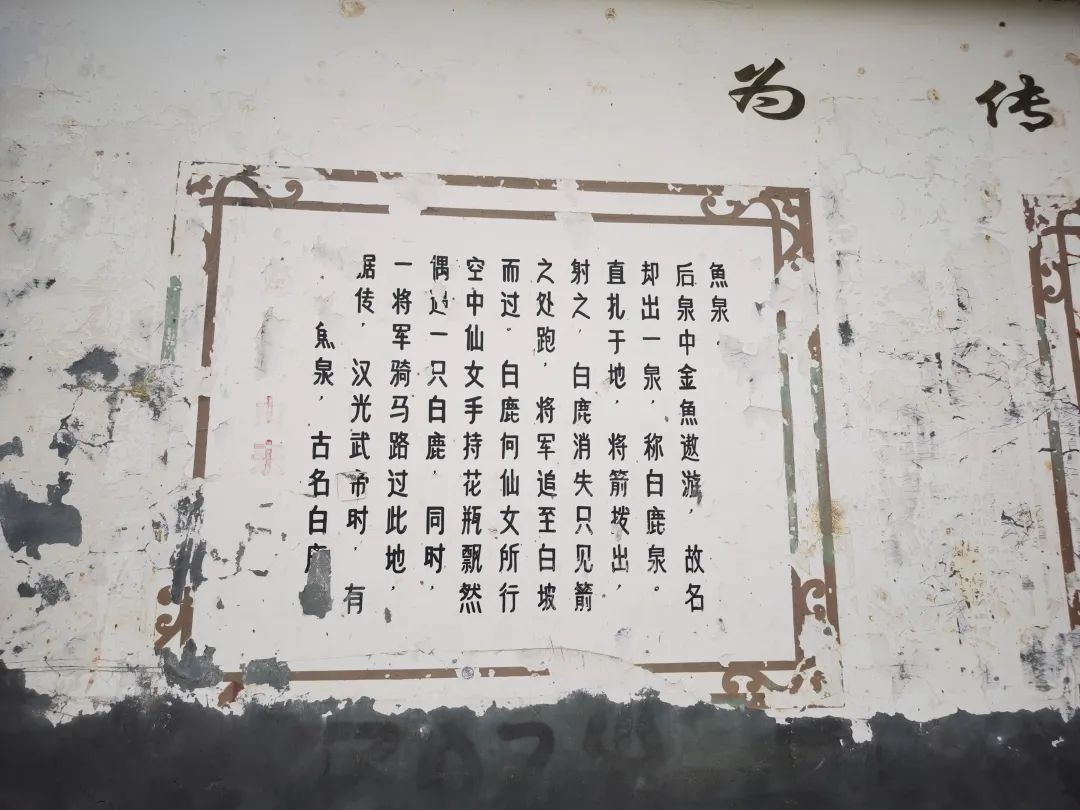 为 传
魚泉，古名白
据传，汉光武帝时，有
一将军骑马路过此地，
偶一只白鹿，同时，
空中仙女手持花瓶飘然
而过。白鹿何仙女所行
之处跑，将军追至白坡
射之，白鹿消失只见箭
直扎于地，将箭拨出，
却出一泉，称白鹿泉。
后泉中金魚遨游，故名
魚泉.